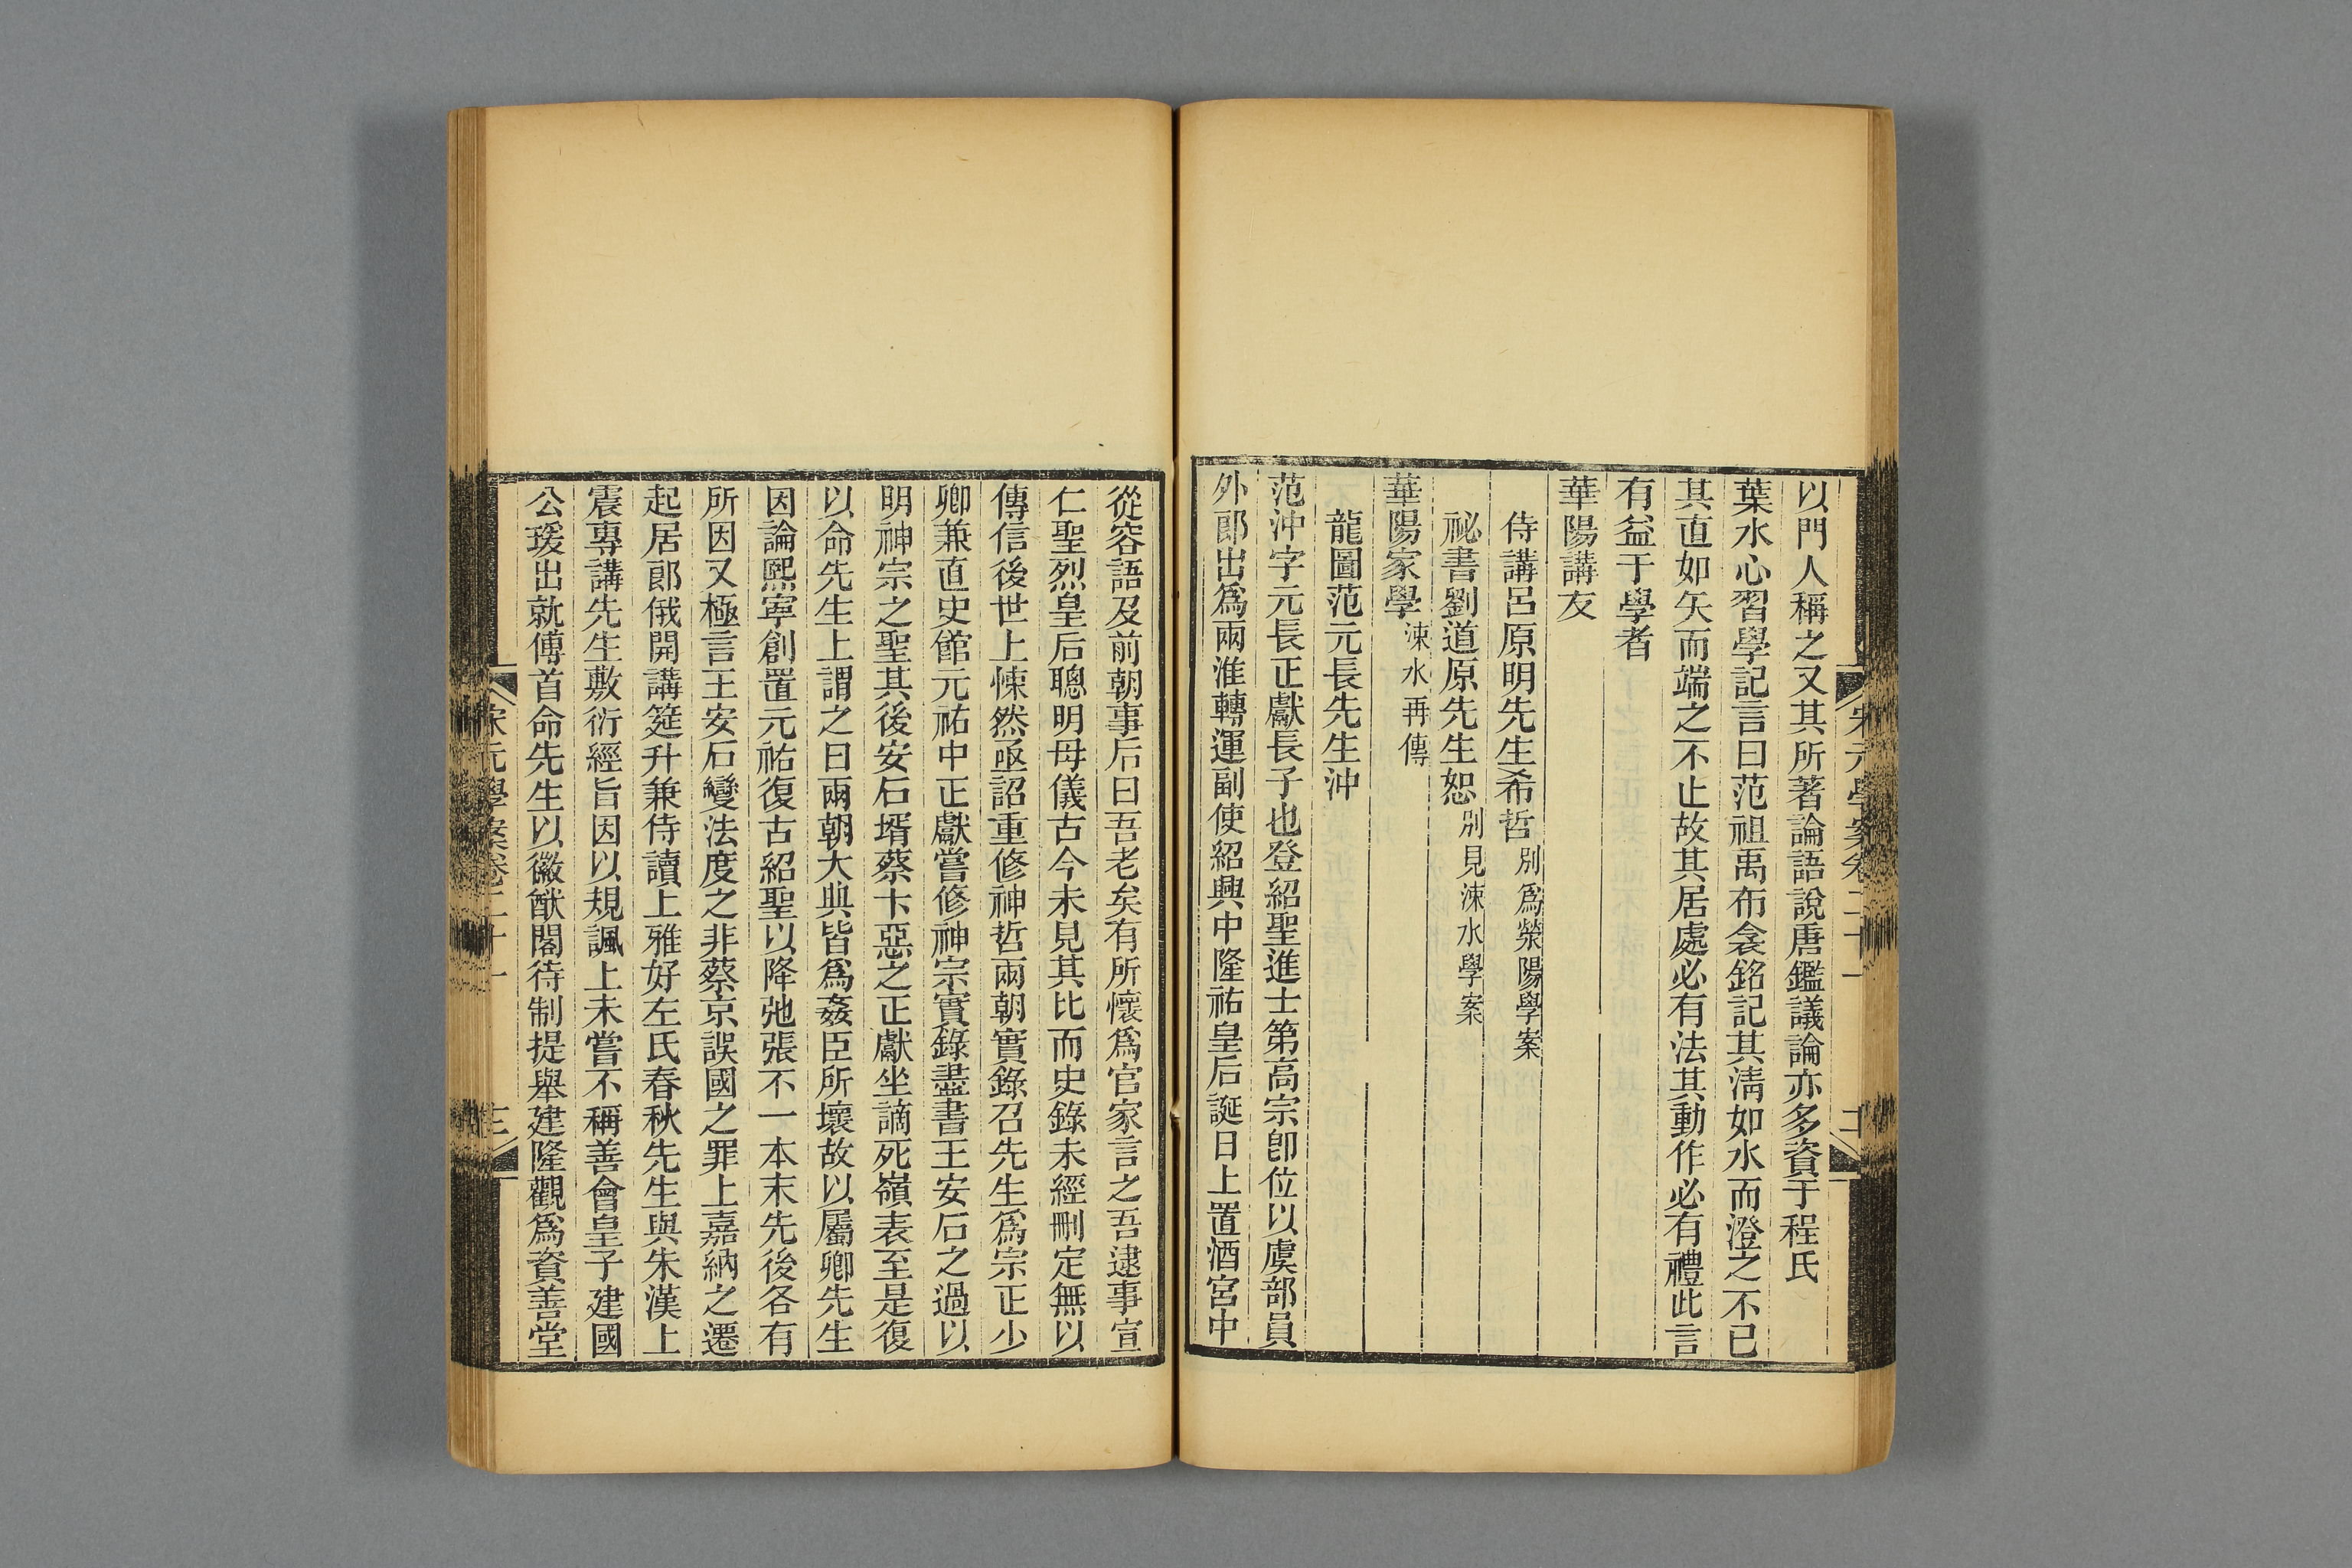 以門人稱之又其所著論語說唐鑑議論亦多資于程氏
葉水心習學記言曰范祖禹布衾銘記其清如水而澄之不已
其直如矢而端之不止故其居處必有法其動作必有禮此言
有益于學者
華陽講友
侍講呂原明先生希哲別爲滎陽學案
祕書劉道原先生恕別見涑水學案
華陽家學涑水再傳
龍圖范元長先生沖
范沖字元長正獻長子也登紹聖進士第高宗卽位以虞部員
外郞出爲兩淮轉運副使紹興中隆祐皇后誕日上置酒宮中
從容語及前朝事后曰吾老矣有所懷爲官家言之吾逮事宣
仁聖烈皇后聰明母儀古今未見其比而史錄未經刪定無以
傳信後世上悚然亟詔重修神哲兩朝實錄召先生爲宗正少
卿兼直史館元祐中正獻嘗修神宗實錄盡書王安石之過以
明神宗之聖其後安石壻蔡卞惡之正獻坐謫死嶺表至是復
以命先生上謂之曰兩朝大典皆爲姦臣所壞故以屬卿先生
因論熙寧創置元祐復古紹聖以降弛張不一本末先後各有
所因又極言王安石變法度之非蔡京誤國之罪上嘉納之遷
起居郞俄開講筵升兼侍讀上雅好左氏春秋先生與朱漢上
震專講先生敷衍經旨因以規諷上未嘗不稱善會皇子建國
公瑗出就傅首命先生以徽猷閣待制提舉建隆觀爲資善堂
宋元學案卷二十一